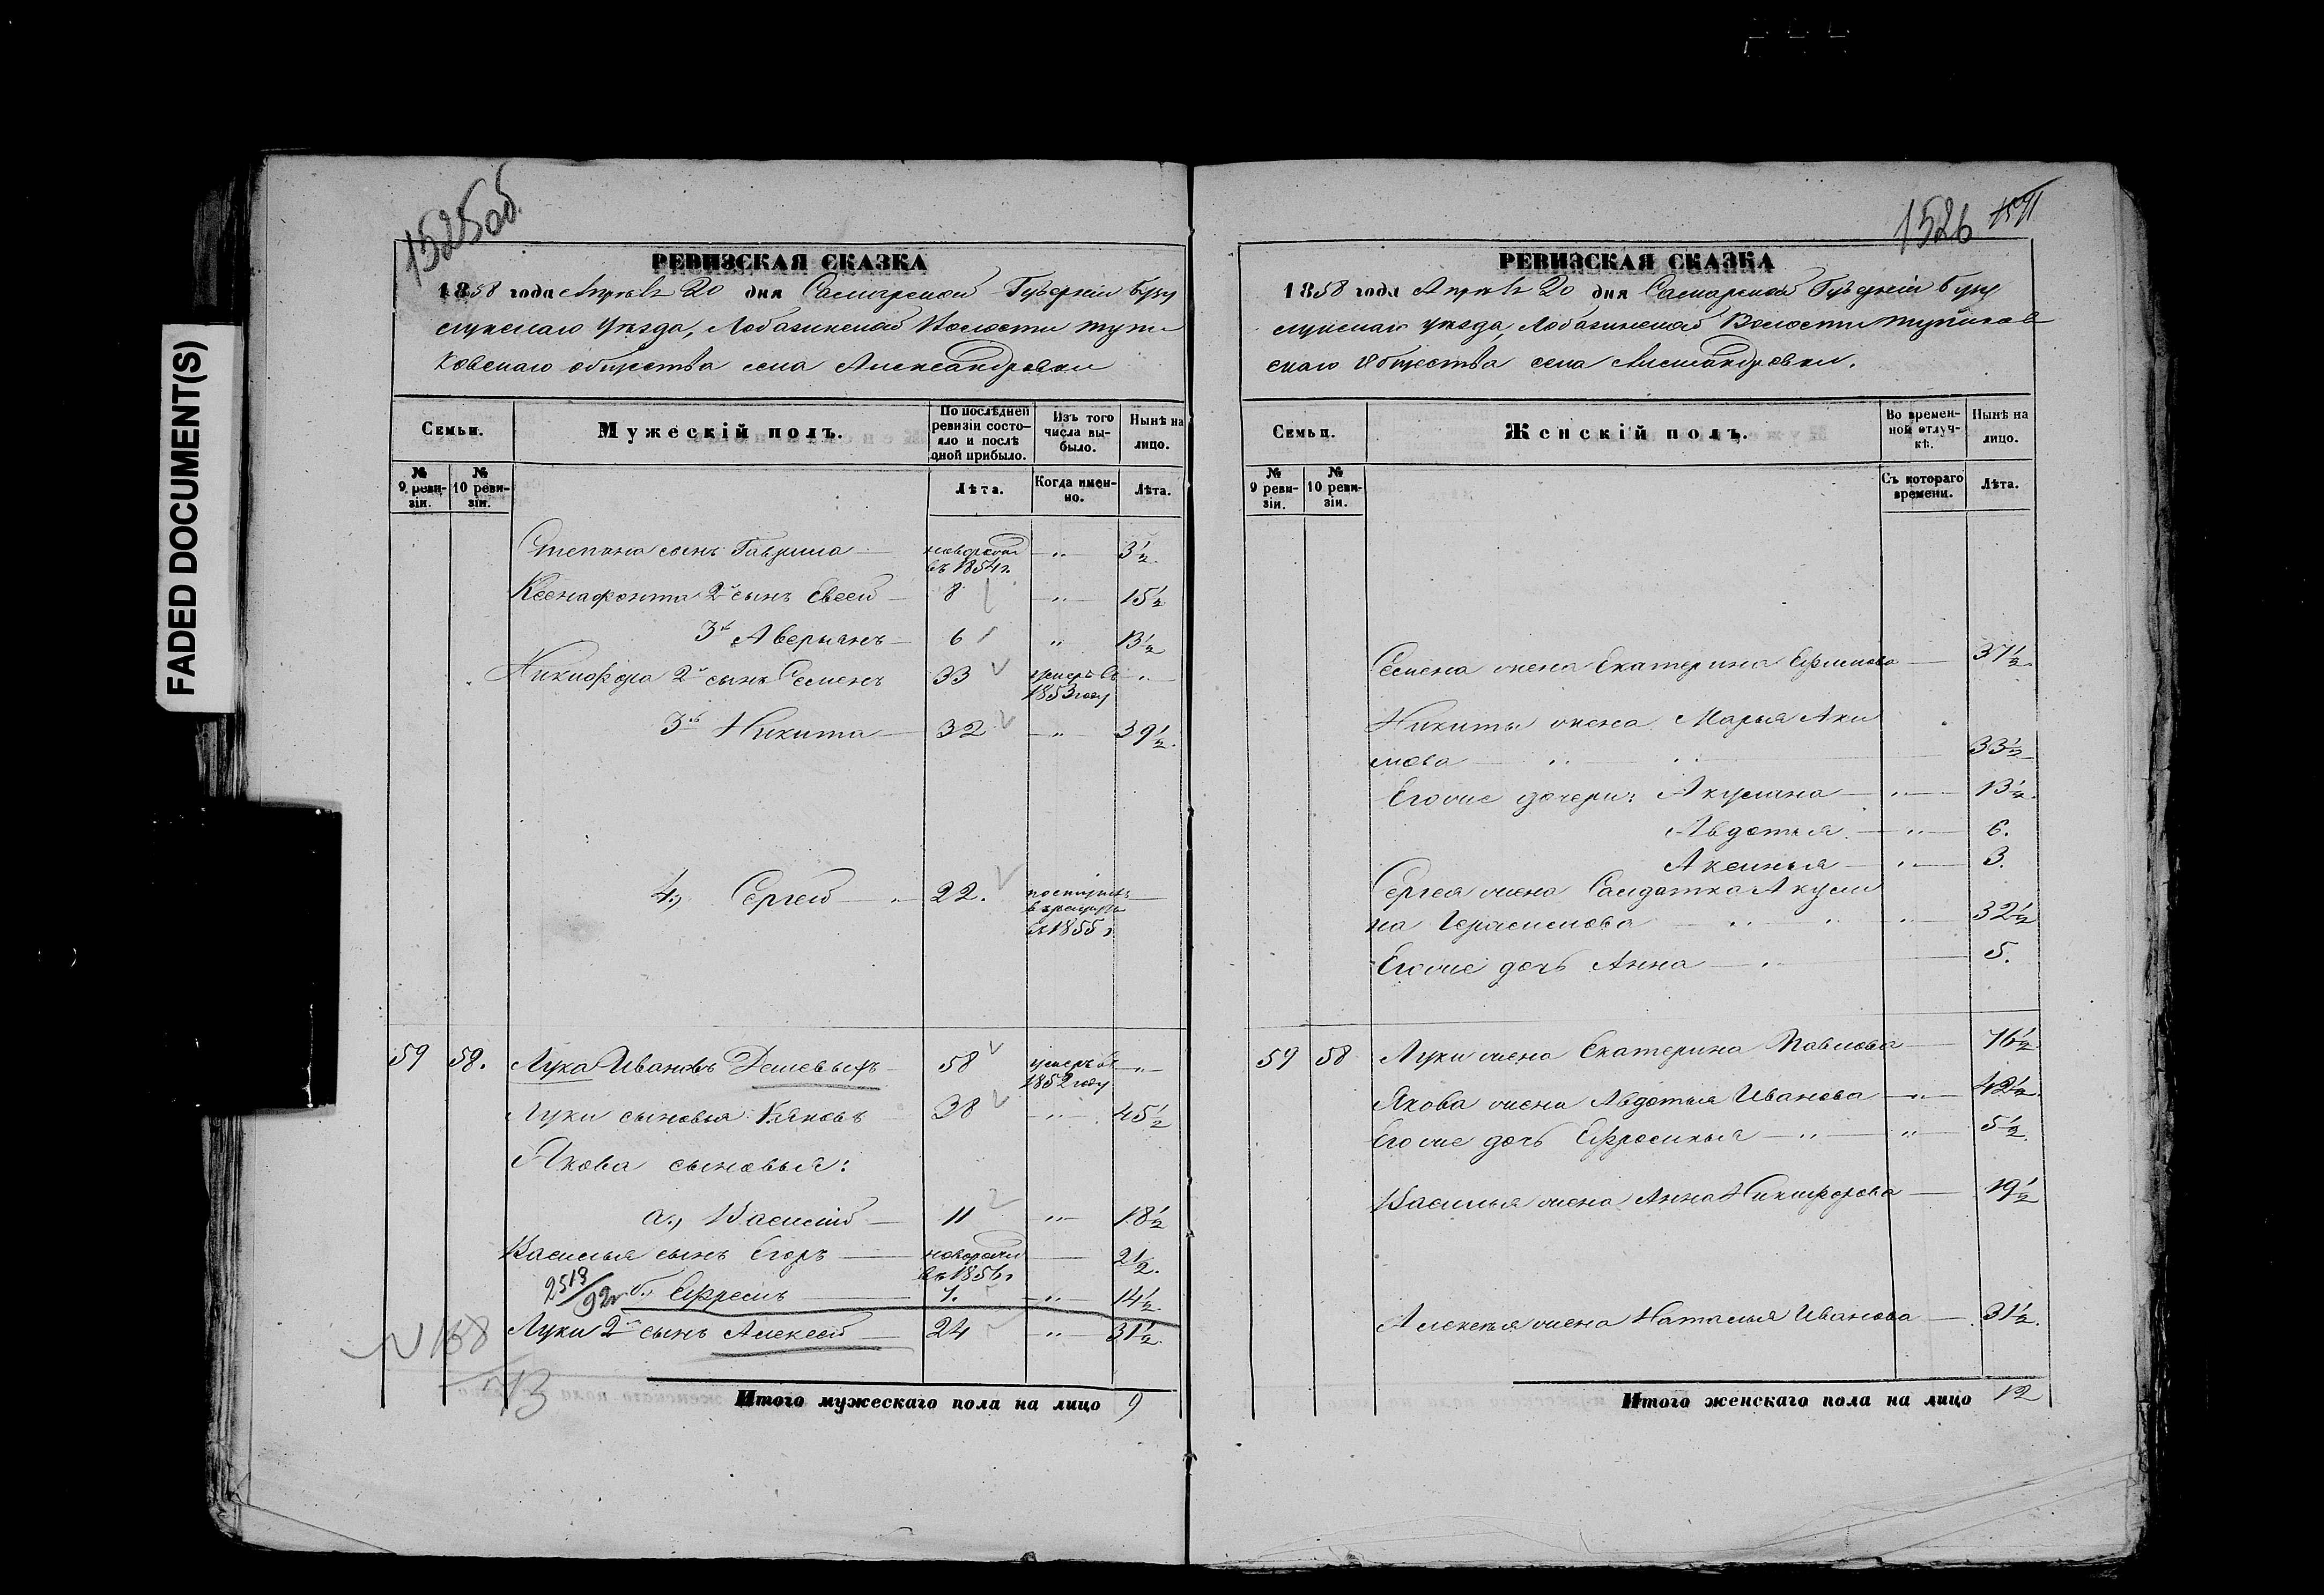 FADED DOCUMENT(S)
1525об.
РЕВИЗСКАЯ СКАЗКА
1858 года Апреля 20 дня Самарской Губерніи Бузу
лукскаго Уѣзда, Лобазинской Волости Тупи
ковскаго общества села Александровки
Семьи.
Мужескій полъ.
По послѣдней ревизіи состояло и послѣ оной прибыло.
Изъ того числа выбыло.
Нынѣ на лицо.
№ 9 ревизіи.
№ 10 ревизіи.
Лѣта.
Когда именно.
Лѣта.
Степана сынъ Гаврила — новорожд въ 1854 г. — „ — 3½
Ксенафонта 2й сынъ Евсей — 8 — „ — 15½
3й Аверьянъ — 6 „ 13½
Никифора 2й сынъ Семенъ 33 умеръ въ 1853 году „
3й Никита — 32 — „ — 39½
4., Сергей — 22. въ 1855 г
59 58. Лука Ивановъ Дешевыхъ — 58 умеръ въ 1852 году — „
Луки сыновья: 1. Яковъ 38 — „ — 45½
Якова сыновья:
а., Василій — 11 „ 18½
Василья сынъ Егоръ — новорожд въ 1856 г — 2½.
2513/92 б., Ефремъ — 7. — „ — 14½
Луки 2й сынъ Алексей — 24 „ 31½.
N 168
13
Итого мужескаго пола на лицо 9
1526
РЕВИЗСКАЯ СКАЗКА
1858 года Апреля 20 дня Самарской Губерніи Бузу
лукскаго уѣзда, Лобазинской Волости Тупиков
скаго Общества села Александровки.
Семьи.
Женскій полъ.
Во временной отлучкѣ.
Нынѣ на лицо.
№ 9 ревизіи.
№ 10 ревизіи.
Съ котораго времени.
Лѣта.
Семена жена Екатерина Ефимова — 37½
Никиты жена Марья Аки
мова — „ „ — 33½
Его же дочери: Акулина — „ — 13½
Авдотья — „ — 6.
Аксинья — „ — 3.
Сергея жена Салдатка Акули
на Герасимова — „ „ „ 32½
Его же дочь Анна — „ — 5.
59 58 Луки жена Екатерина Павлова — 76½
Якова жена Авдотья Иванова — „ — 42½
Его же дочь Ефросинья — „ — „ 5½
Василья жена Анна Никифорова — 19½
Алексея жена Наталья Иванова — 31½.
Итого женскаго пола на лицо 12